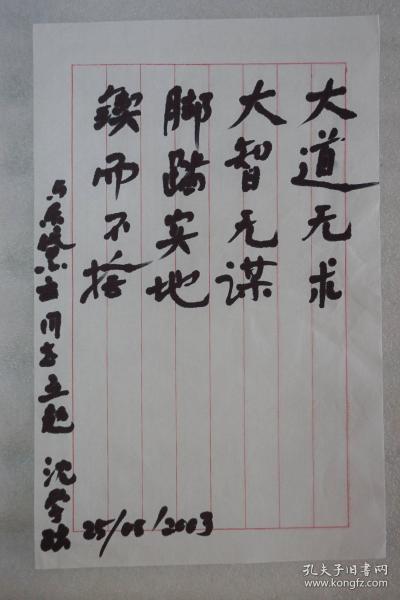 大道无求
大智无谋
脚踏实地
锲而不捨
同志立勉 沈学
25/08/2003
孔夫子旧书网
www.kongfz.com